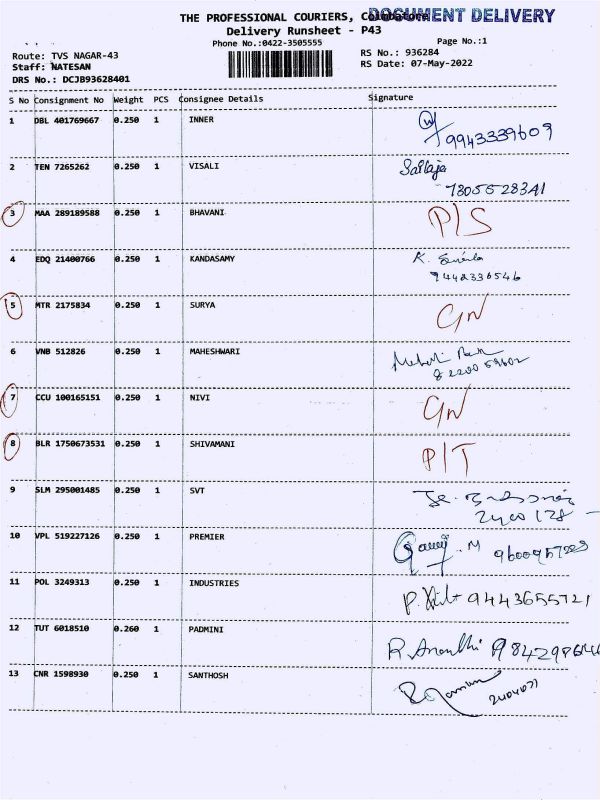 THE PROFESSIONAL COURIERS, Coimbatore
DOCUMENT DELIVERY
Delivery Runsheet - P43
Phone No.:0422-3505555
Page No.:1
Route: TVS NAGAR-43
RS No.: 936284
Staff: NATESAN
RS Date: 07-May-2022
DRS No.: DCJB93628401
S No Consignment No Weight PCS Consignee Details Signature
1 DBL 401769667 0.250 1 INNER
9943339609
2 TEN 7265262 0.250 1 VISALI Sailaja
7805528341
3 MAA 289189588 0.250 1 BHAVANI P/S
4 EDQ 21400766 0.250 1 KANDASAMY K.
9442336546
5 MTR 2175834 0.250 1 SURYA GN
6 VNB 512826 0.250 1 MAHESHWARI
7 CCU 100165151 0.250 1 NIVI GN
8 BLR 1750673531 0.250 1 SHIVAMANI P/T
9 SLM 295001485 0.250 1 SVT
10 VPL 519227126 0.250 1 PREMIER
11 POL 3249313 0.250 1 INDUSTRIES P. 9443655721
12 TUT 6018510 0.260 1 PADMINI R Ananthi
13 CNR 1598930 0.250 1 SANTHOSH